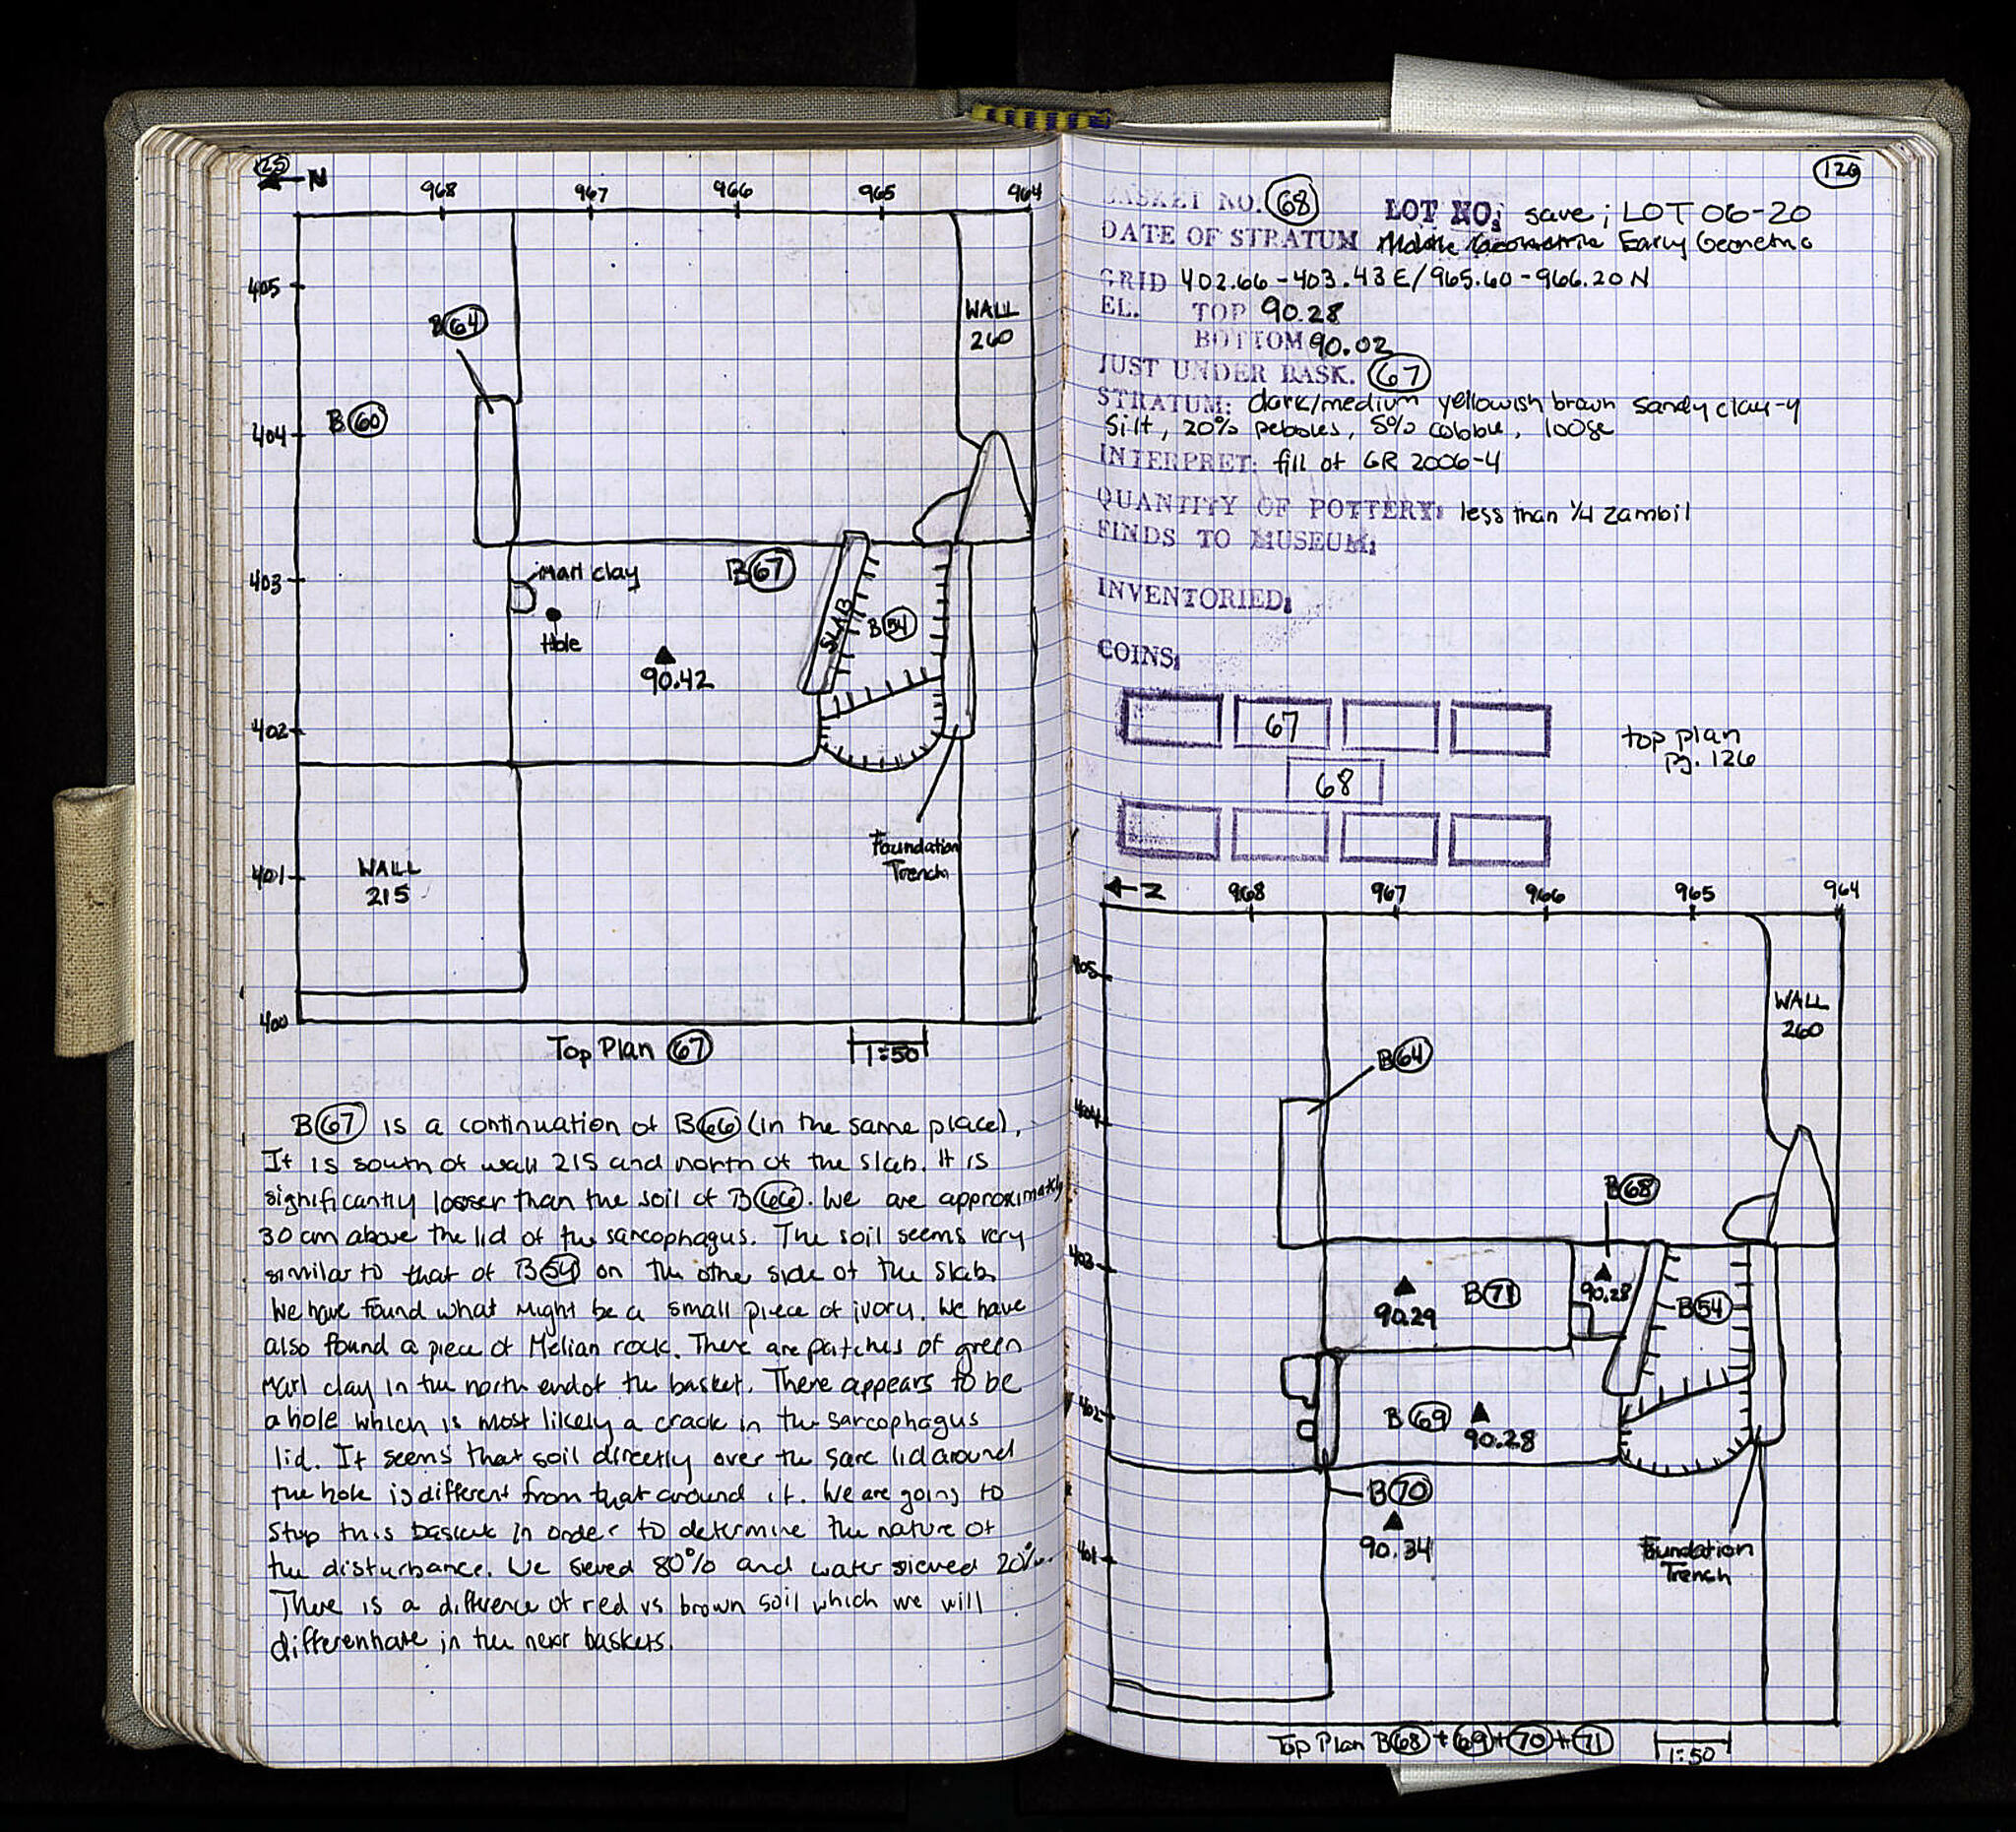 125
N
968 967 966 965 964
405
B 64
WALL
260
B 60
404
403
Marl clay
B 67
Hole
SLAB
B 54
90.42
402
Foundation
Trench
401
WALL
215
400
Top Plan 67 1:50
B 67 is a continuation of B 66 (in the same place).
It is south of wall 215 and north of the slab. It is
significantly losser than the soil of B 66. We are approximately
30 cm above the lid of the sarcophagus. The soil seems very
similar to that of B 54 on the other side of the slab.
We have found what might be a small piece of ivory. We have
also found a piece of Melian rock. There are patches of green
marl clay in the north end of the basket. There appears to be
a hole which is most likely a crack in the sarcophagus
lid. It seems that soil directly over the sarc lid around
the hole is different from that around it. We are going to
stop this basket in order to determine the nature of
the disturbance. We sieved 80% and water sieved 20%.
There is a difference of red vs brown soil which we will
differentiate in the next baskets.
126
BASKET NO. 68 LOT NO; save; LOT 06-20
DATE OF STRATUM Middle Geometric Early Geometric
GRID 402.66-403.43 E/965.60-966.20 N
EL. TOP 90.28
BOTTOM 90.02
JUST UNDER BASK. 67
STRATUM: dark/medium yellowish brown sandy clay-y
silt, 20% pebbles, 5% cobble, loose
INTERPRET: fill of GR 2006-4
QUANTITY OF POTTERY: less than 1/4 zambil
FINDS TO MUSEUM:
INVENTORIED:
COINS:
67
68
top plan
pg. 126
N
968 967 966 965 964
405
WALL
260
B 64
404
B 68
403
90.29
B 71
90.28
B 54
402
B 69
90.28
B 70
90.34
401
Foundation
Trench
Top Plan B 68 + 69 + 70 + 71 1:50